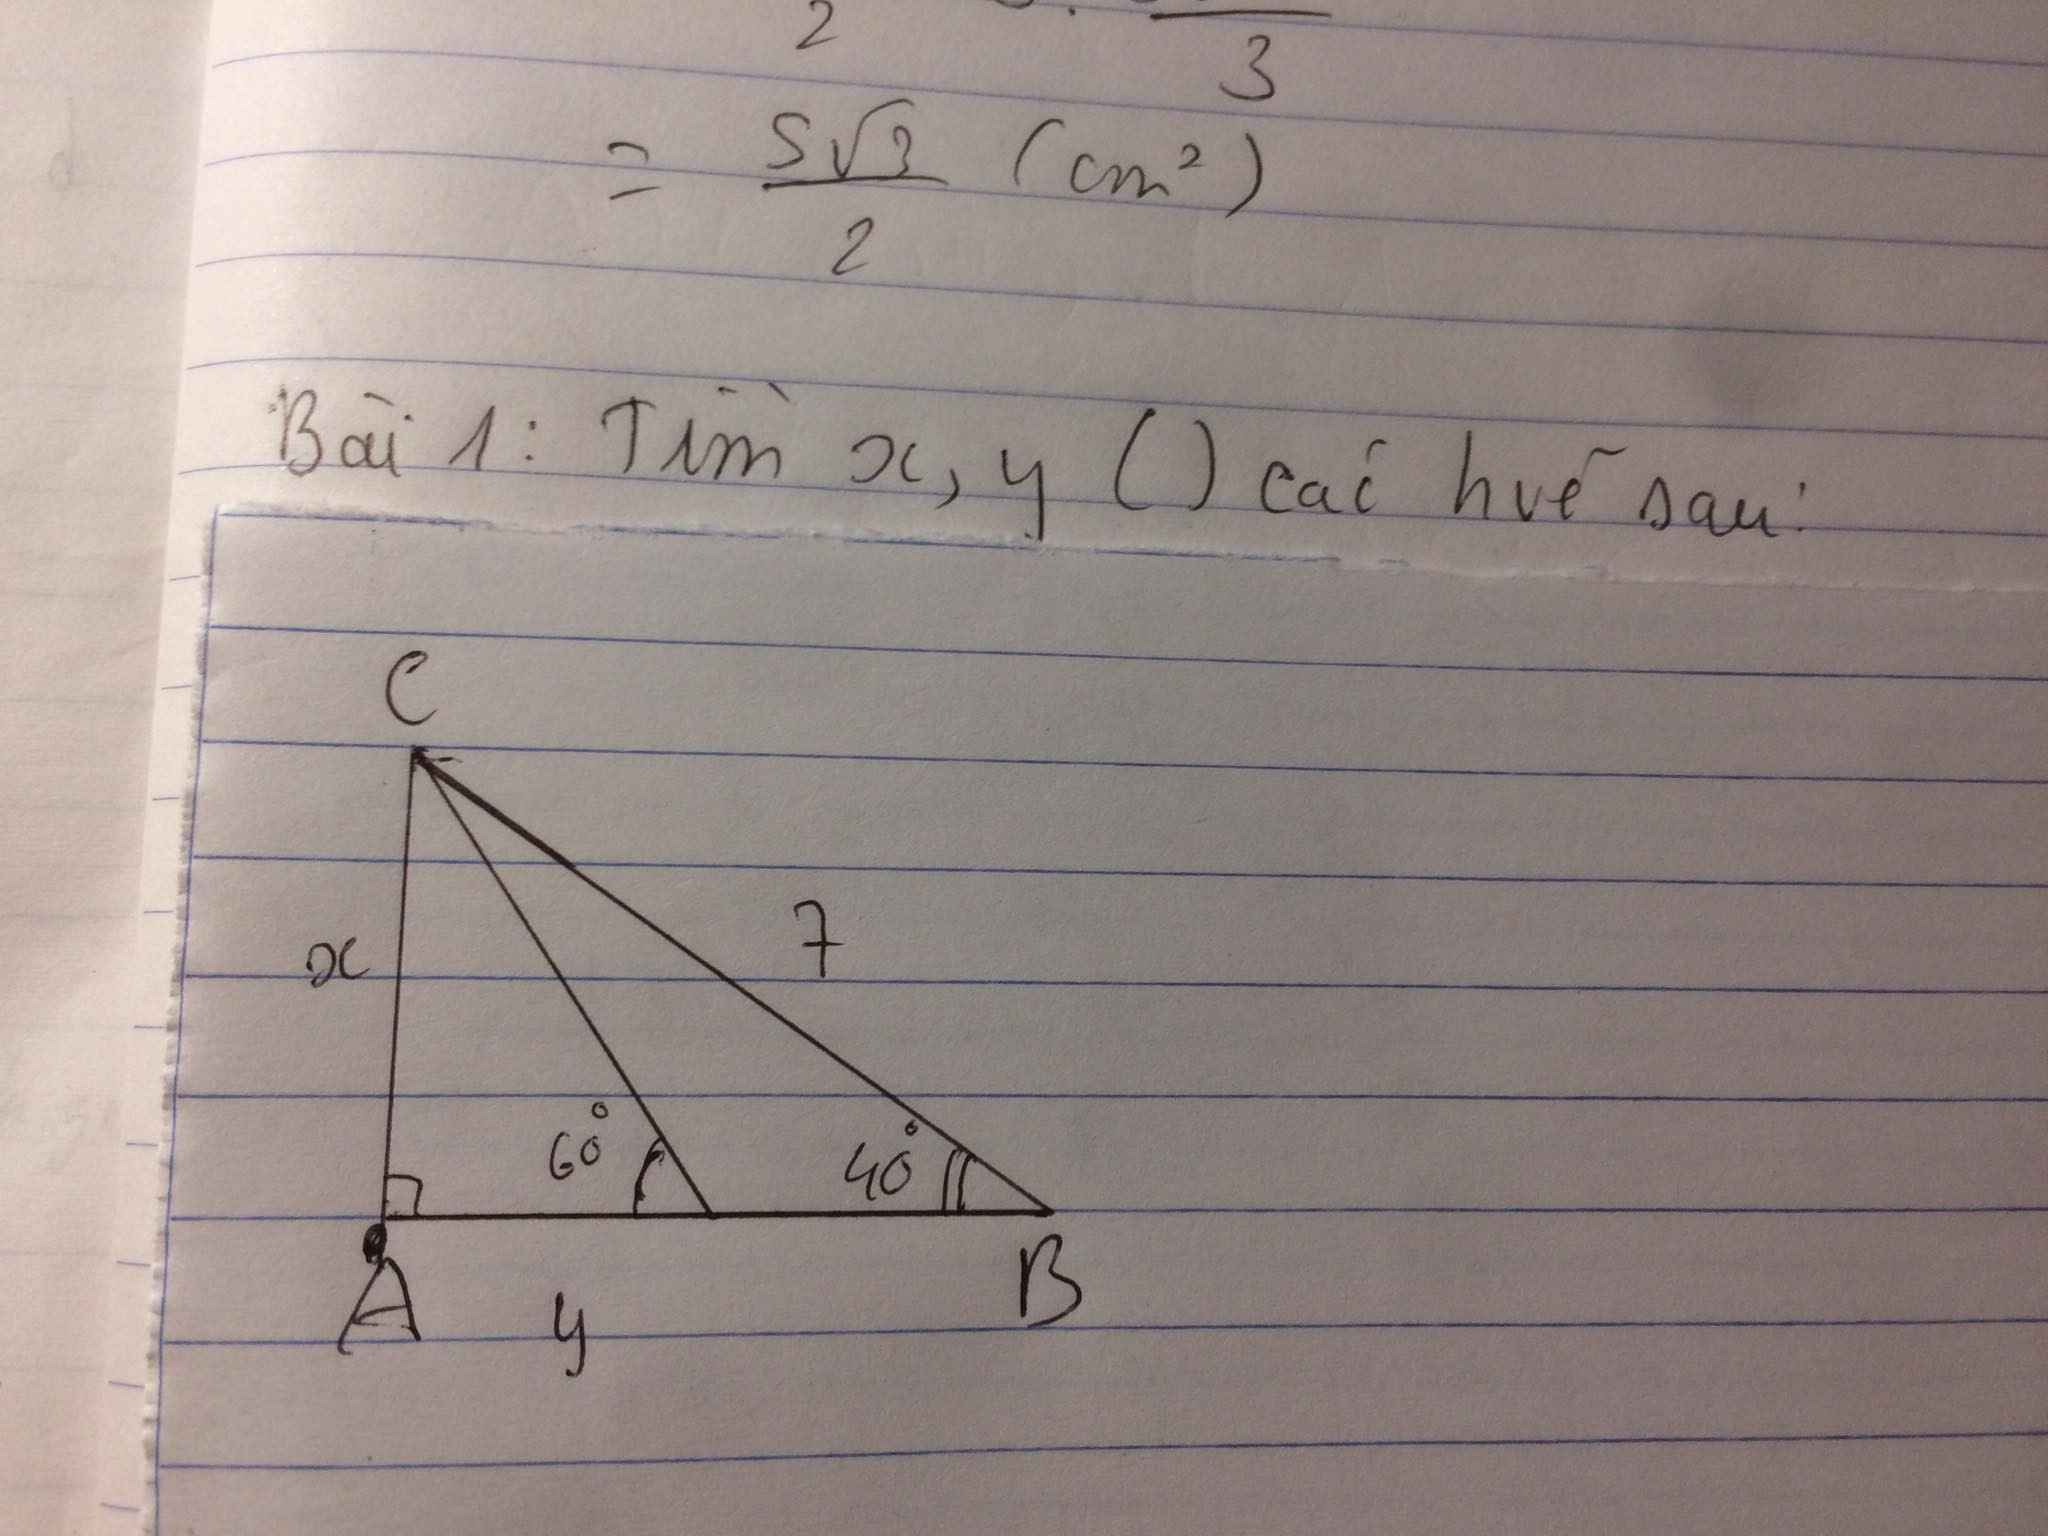 2
3
= 5√3 (cm²)
2
Bài 1: Tìm x, y () các hvẽ sau:
C
x
7
60°
40°
A
y
B